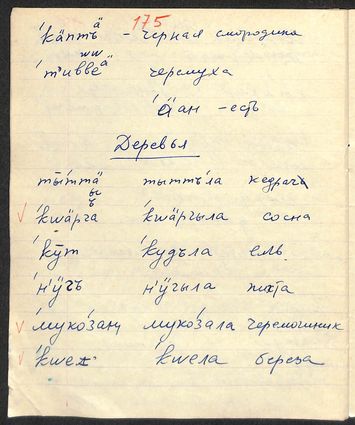 175
ʹкӓптъ ä – черная смородина
ww
ʹтивве ä черемуха
ʹӓ̄ан – есть
Деревья
ты́ттӓ тыттъ́ла кедрач
ы
ъ
ʹкwӓрга ʹкwӓргыла сосна
ʹкӯт ʹкудъла ель
ʹнӱгъ нʹӱгыла пихта
ʹмуко́зан мукоʹзала черемошник
ʹкwел ʹкwела береза